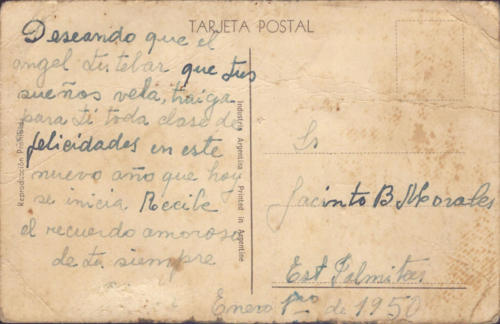 TARJETA POSTAL
Deseando que el
angel tutelar que tus
sueños vela, traiga
para ti toda clase de
felicidades en este
nuevo año que hoy
se inicia Recibe
el recuerdo amoroso
de tu siempre
Reproducción Prohibida
Industria Argentina Printed in Argentine
Sr
Jacinto B Morales
Est Palmitas
Enero 1ro de 1950